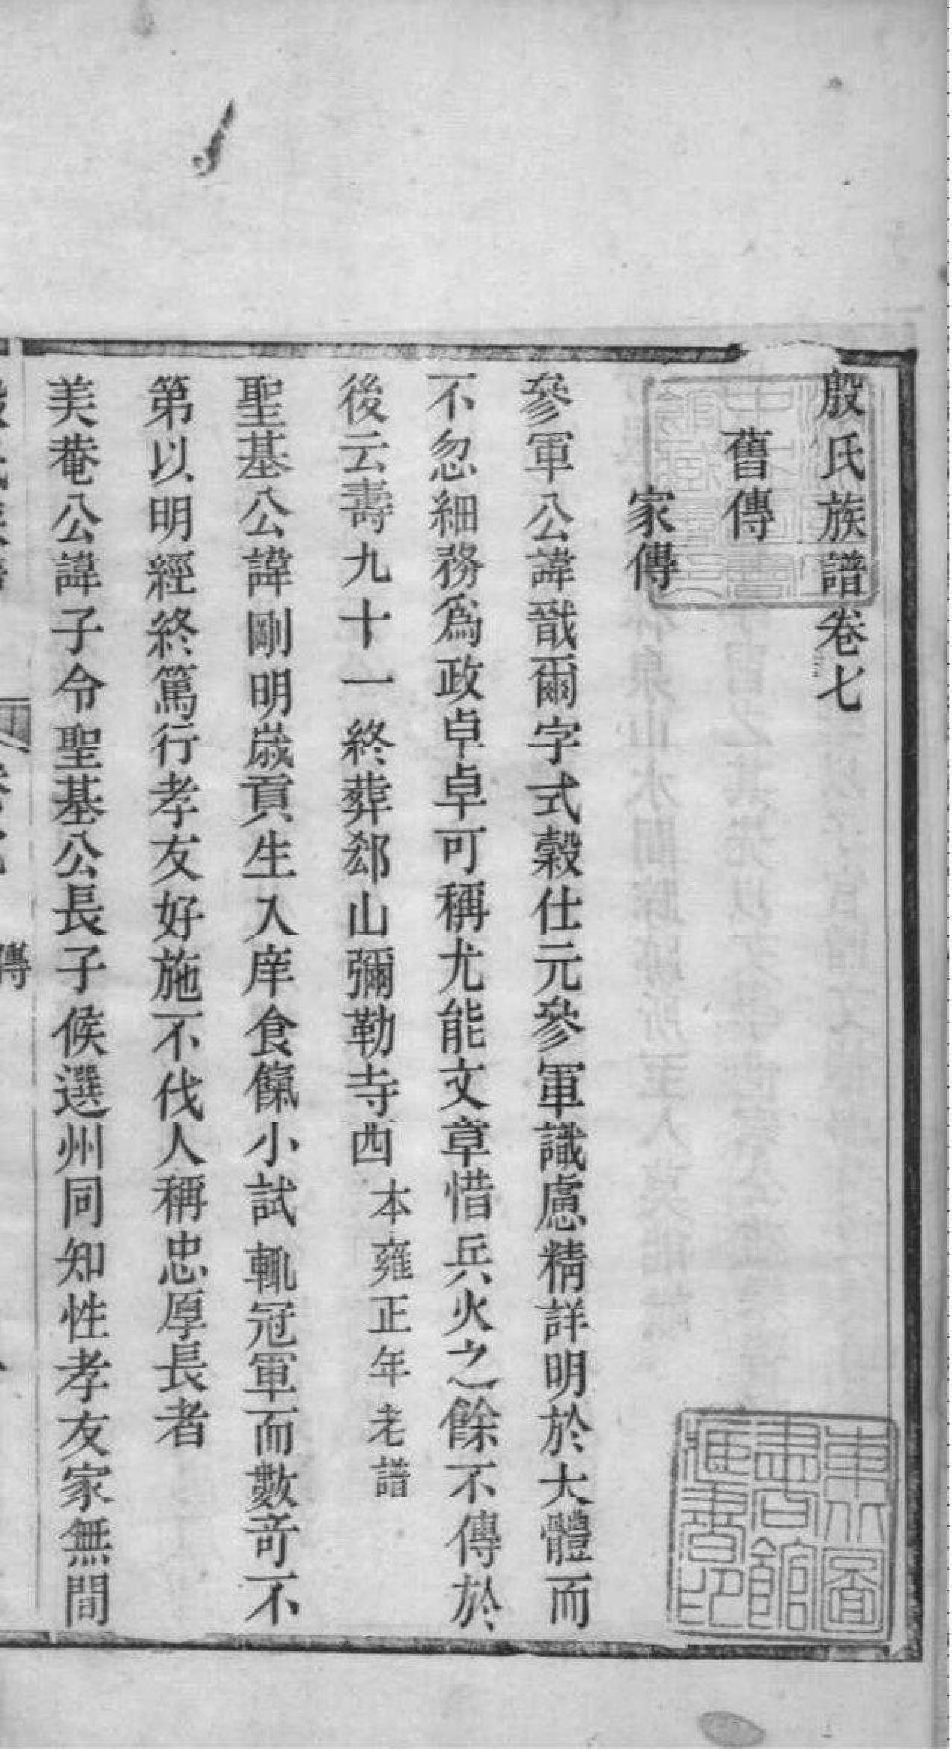 殷氏族譜卷七
舊傳
家傳
參軍公諱戩爾字式穀仕元參軍識慮精詳明於大體而
不忽細務爲政卓卓可稱尤能文章惜兵火之餘不傳於
後云壽九十一終葬郄山彌勒寺西本雍正年老譜
聖基公諱剛明歲貢生入庠食餼小試輒冠軍而數奇不
第以明經終篤行孝友好施不伐人稱忠厚長者
美菴公諱子令聖基公長子候選州同知性孝友家無間
傳
東北圖
書館
藏書印